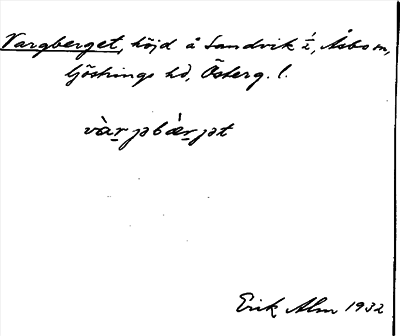 Vargberget, höjd å Sandvik 1/2, Åsbo sn,
Göstrings hd, Österg. l.
vàr̲jəbǽr̲jət
Erik Alm 1932